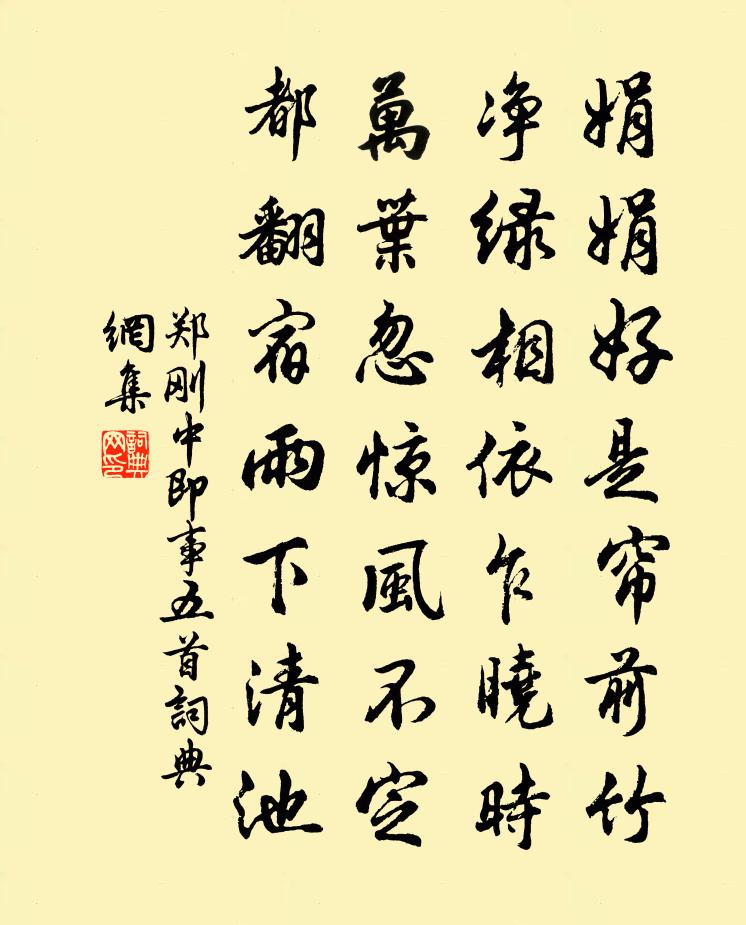 娟娟好是帘前竹
净绿相依乍曉時
萬葉忽惊風不定
都翻宿雨下清池
郑刚中即事五首詞典
網集
詞典网印